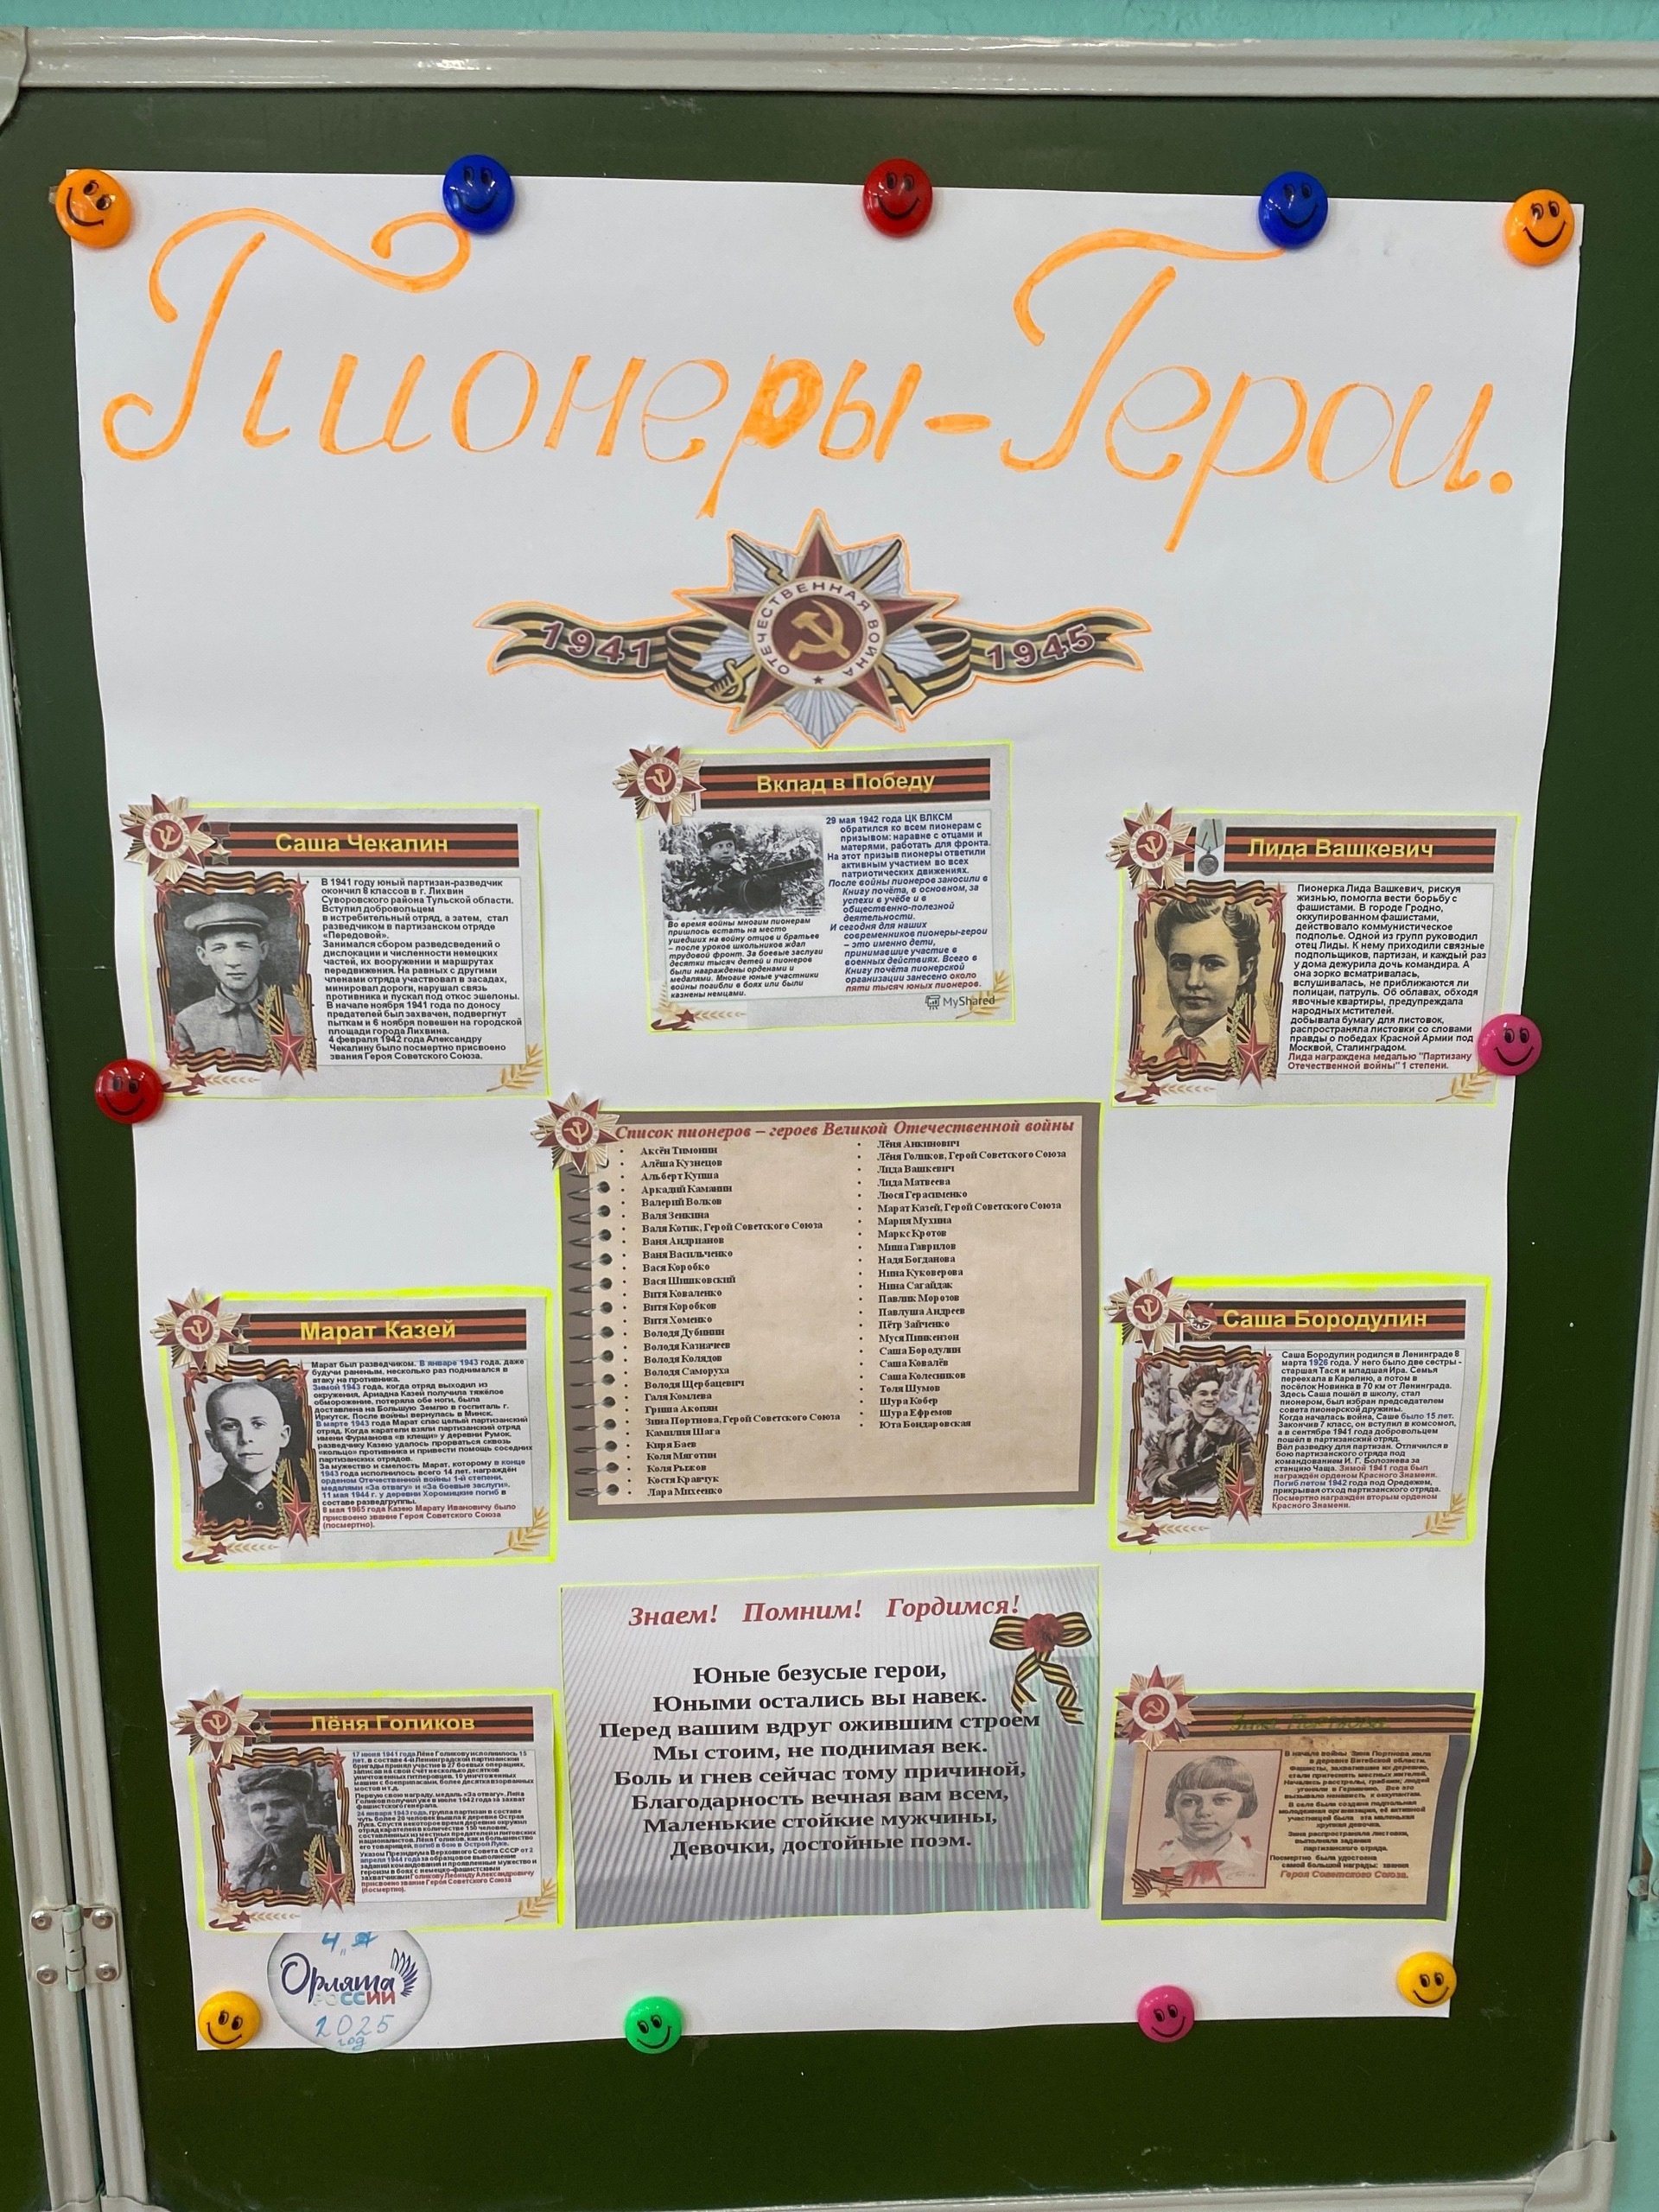 Пионеры-Герои.
ОТЕЧЕСТВЕННАЯ ВОЙНА
1941
1945
Вклад в Победу
29 мая 1942 года ЦК ВЛКСМ
обратился ко всем пионерам с
призывом: наравне с отцами и
матерями, работать для фронта.
На этот призыв пионеры ответили
активным участием во всех
патриотических движениях.
После войны пионеров заносили в
Книгу почёта, в основном, за
успехи в учёбе и в
общественно-полезной
деятельности.
И сегодня для наших
современников пионеры-герои
– это именно дети,
принимавшие участие в
военных действиях. Всего в
Книгу почёта пионерской
организации занесено около
пяти тысяч юных пионеров.
Во время войны многим пионерам
пришлось встать на место
ушедших на войну отцов и братьев
– после уроков школьников ждал
трудовой фронт. За боевые заслуги
десятки тысяч детей и пионеров
были награждены орденами и
медалями. Многие юные участники
войны погибли в боях или были
казнены немцами.
MyShared
Саша Чекалин
В 1941 году юный партизан-разведчик
окончил 8 классов в г. Лихвин
Суворовского района Тульской области.
Вступил добровольцем
в истребительный отряд, а затем, стал
разведчиком в партизанском отряде
«Передовой».
Занимался сбором разведсведений о
дислокации и численности немецких
частей, их вооружении и маршрутах
передвижения. На равных с другими
членами отряда участвовал в засадах,
минировал дороги, нарушал связь
противника и пускал под откос эшелоны.
В начале ноября 1941 года по доносу
предателей был захвачен, подвергнут
пыткам и 6 ноября повешен на городской
площади города Лихвина.
4 февраля 1942 года Александру
Чекалину было посмертно присвоено
звания Героя Советского Союза.
Лида Вашкевич
Пионерка Лида Вашкевич, рискуя
жизнью, помогла вести борьбу с
фашистами. В городе Гродно,
оккупированном фашистами,
действовало коммунистическое
подполье. Одной из групп руководил
отец Лиды. К нему приходили связные
подпольщиков, партизан, и каждый раз
у дома дежурила дочь командира. А
она зорко всматривалась,
вслушивалась, не приближаются ли
полицаи, патруль. Об облавах, обходя
явочные квартиры, предупреждала
народных мстителей.
добывала бумагу для листовок,
распространяла листовки со словами
правды о победах Красной Армии под
Москвой, Сталинградом.
Лида награждена медалью "Партизану
Отечественной войны" 1 степени.
Список пионеров – героев Великой Отечественной войны
Аксён Тимонин
Алёша Кузнецов
Альберт Купша
Аркадий Каманин
Валерий Волков
Валя Зенкина
Валя Котик, Герой Советского Союза
Ваня Андрианов
Ваня Васильченко
Вася Коробко
Вася Шишковский
Витя Коваленко
Витя Коробков
Витя Хоменко
Володя Дубинин
Володя Казначеев
Володя Колядов
Володя Саморуха
Володя Щербацевич
Галя Комлева
Гриша Акопян
Зина Портнова, Герой Советского Союза
Камилия Шага
Киря Баев
Коля Мяготин
Коля Рыжов
Костя Кравчук
Лара Михеенко
Лёня Анкинович
Лёня Голиков, Герой Советского Союза
Лида Вашкевич
Лида Матвеева
Люся Герасименко
Марат Казей, Герой Советского Союза
Мария Мухина
Маркс Кротов
Миша Гаврилов
Надя Богданова
Нина Куковерова
Нина Сагайдак
Павлик Морозов
Павлуша Андреев
Пётр Зайченко
Муся Пинкензон
Саша Бородулин
Саша Ковалёв
Саша Колесников
Толя Шумов
Шура Кобер
Шура Ефремов
Юта Бондаровская
Марат Казей
Марат был разведчиком. В январе 1943 года, даже
будучи раненым, несколько раз поднимался в
атаку на противника.
Зимой 1943 года, когда отряд выходил из
окружения, Ариадна Казей получила тяжёлое
обморожение, потеряла обе ноги, была
доставлена на Большую Землю в госпиталь г.
Иркутск. После войны вернулась в Минск.
В марте 1943 года Марат спас целый партизанский
отряд. Когда каратели взяли партизанский отряд
имени Фурманова «в клещи» у деревни Румок,
разведчику Казею удалось прорваться сквозь
«кольцо» противника и привести помощь соседних
партизанских отрядов.
За мужество и смелость Марат, которому в конце
1943 года исполнилось всего 14 лет, награждён
орденом Отечественной войны 1-й степени,
медалями «За отвагу» и «За боевые заслуги».
11 мая 1944 г. у деревни Хоромицкие погиб в
составе разведгруппы.
8 мая 1965 года Казею Марату Ивановичу было
присвоено звание Героя Советского Союза
(посмертно).
Саша Бородулин
Саша Бородулин родился в Ленинграде 8
марта 1926 года. У него было две сестры -
старшая Тася и младшая Ира. Семья
переехала в Карелию, а потом в
посёлок Новинка в 70 км от Ленинграда.
Здесь Саша пошёл в школу, стал
пионером, был избран председателем
совета пионерской дружины.
Когда началась война, Саше было 15 лет.
Закончив 7 класс, он вступил в комсомол,
а в сентябре 1941 года добровольцем
пошёл в партизанский отряд.
Вёл разведку для партизан. Отличился в
бою партизанского отряда под
командованием И. Г. Болознева за
станцию Чаща. Зимой 1941 года был
награждён орденом Красного Знамени.
Погиб летом 1942 года под Оредежем,
прикрывая отход партизанского отряда.
Посмертно награждён вторым орденом
Красного Знамени.
Знаем! Помним! Гордимся!
Юные безусые герои,
Юными остались вы навек.
Перед вашим вдруг ожившим строем
Мы стоим, не поднимая век.
Боль и гнев сейчас тому причиной,
Благодарность вечная вам всем,
Маленькие стойкие мужчины,
Девочки, достойные поэм.
Лёня Голиков
17 июня 1941 года Лёне Голикову исполнилось 15
лет. в составе 4-й Ленинградской партизанской
бригады принял участие в 27 боевых операциях,
записав на свой счёт несколько десятков
уничтоженных гитлеровцев, 10 уничтоженных
машин с боеприпасами, более десятка взорванных
мостов и т.д.
Первую свою награду, медаль «За отвагу», Лёня
Голиков получил уже в июле 1942 года за захват
фашистского генерала.
24 января 1943 года, группа партизан в составе
чуть более 20 человек вышла к деревне Острая
Лука. Спустя некоторое время деревню окружил
отряд карателей в количестве 150 человек,
составленных из местных предателей и литовских
националистов. Лёня Голиков, как и большинство
его товарищей, погиб в бою в Острой Луке.
Указом Президиума Верховного Совета СССР от 2
апреля 1944 года за образцовое выполнение
заданий командования и проявленные мужество и
героизм в боях с немецко-фашистскими
захватчиками Голикову Леониду Александровичу
присвоено звание Героя Советского Союза
(посмертно).
Зина Портнова
В начале войны Зина Портнова жила
в деревне Витебской области.
Фашисты, захватившие их деревню,
стали притеснять местных жителей.
Начались расстрелы, грабежи; людей
угоняли в Германию. Все это
вызывало ненависть к оккупантам.
В селе была создана подпольная
молодежная организация, её активной
участницей была эта маленькая
хрупкая девочка.
Зина распространяла листовки,
выполняла задания
партизанского отряда.
Посмертно была удостоена
самой большой награды: звания
Героя Советского Союза.
Орлята
РОССИИ
2025
год